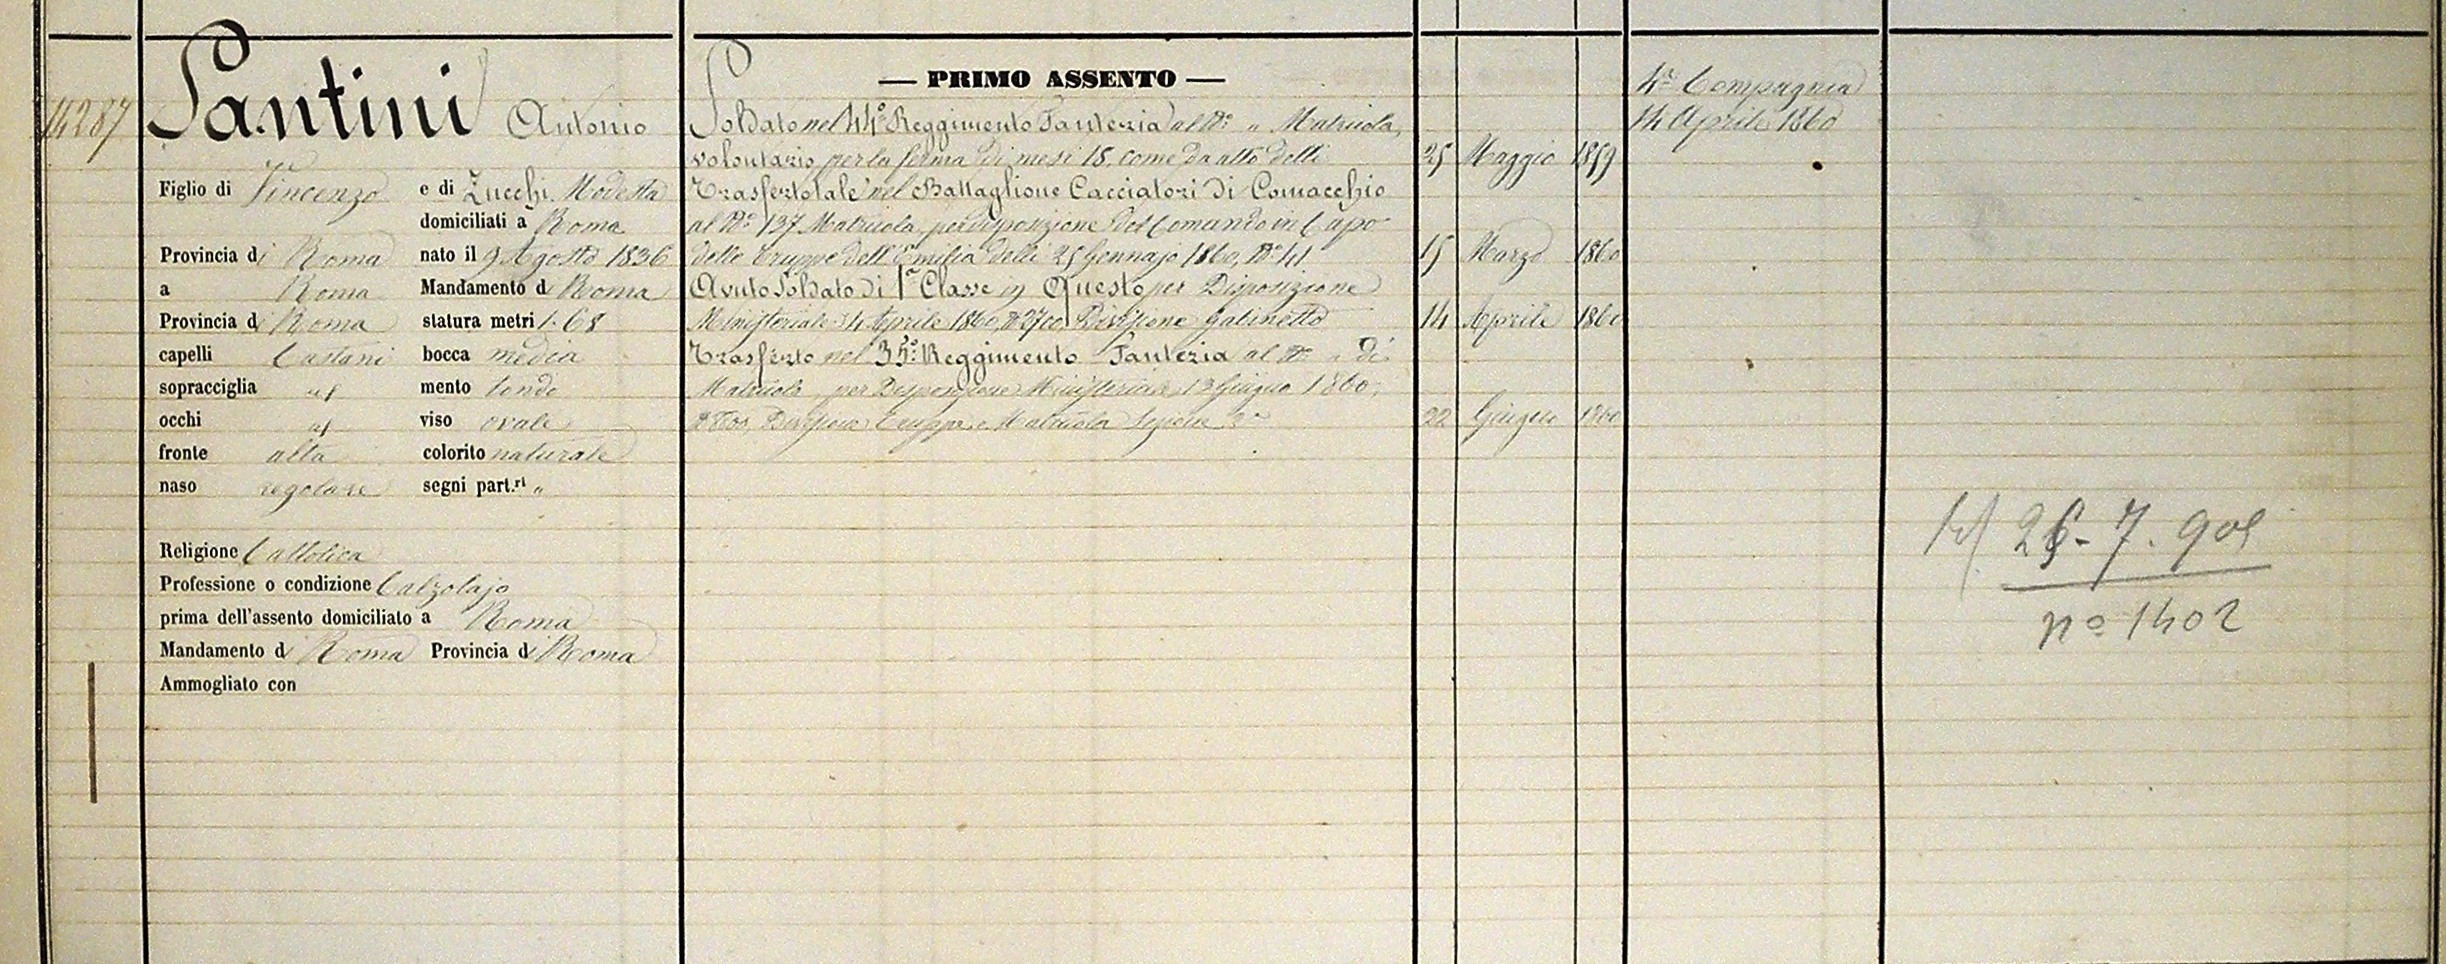 14287
Santini Antonio
Figlio di Vincenzo e di Zucchi Modesta
domiciliati a Roma
Provincia di Roma nato il 9 Agosto 1836
a Roma Mandamento di Roma
Provincia di Roma statura metri 1.68
capelli Castani bocca media
sopracciglia id mento tondo
occhi id viso ovale
fronte alta colorito naturale
naso regolare segni part.ri "
Religione Cattolica
Professione o condizione Calzolajo
prima dell'assento domiciliato a Roma
Mandamento di Roma Provincia di Roma
Ammogliato con
— PRIMO ASSENTO —
Soldato nel 44° Reggimento Fanteria al N° " Matricola,
volontario per la ferma di mesi 18, come da atto delli 25 Maggio 1859
Trasferto tale nel Battaglione Cacciatori di Comacchio
al N° 137 Matricola, per disposizione del Comando in Capo
delle Truppe dell'Emilia delli 25 Gennajo 1860, N° 41 15 Marzo 1860
Avuto Soldato di 1ª Classe in Questo per Disposizione
Ministeriale 4 Aprile 1860, N° 2700 Divisione Gabinetto 14 Aprile 1860
Trasferto nel 35° Reggimento Fanteria al N° " di
Matricola per Disposizione Ministeriale 13 Giugno 1860,
Divisione Truppe e Matricola Sezione 3ª 22 Giugno 1860
4ª Compagnia
14 Aprile 1860
28-7.901
n° 1402